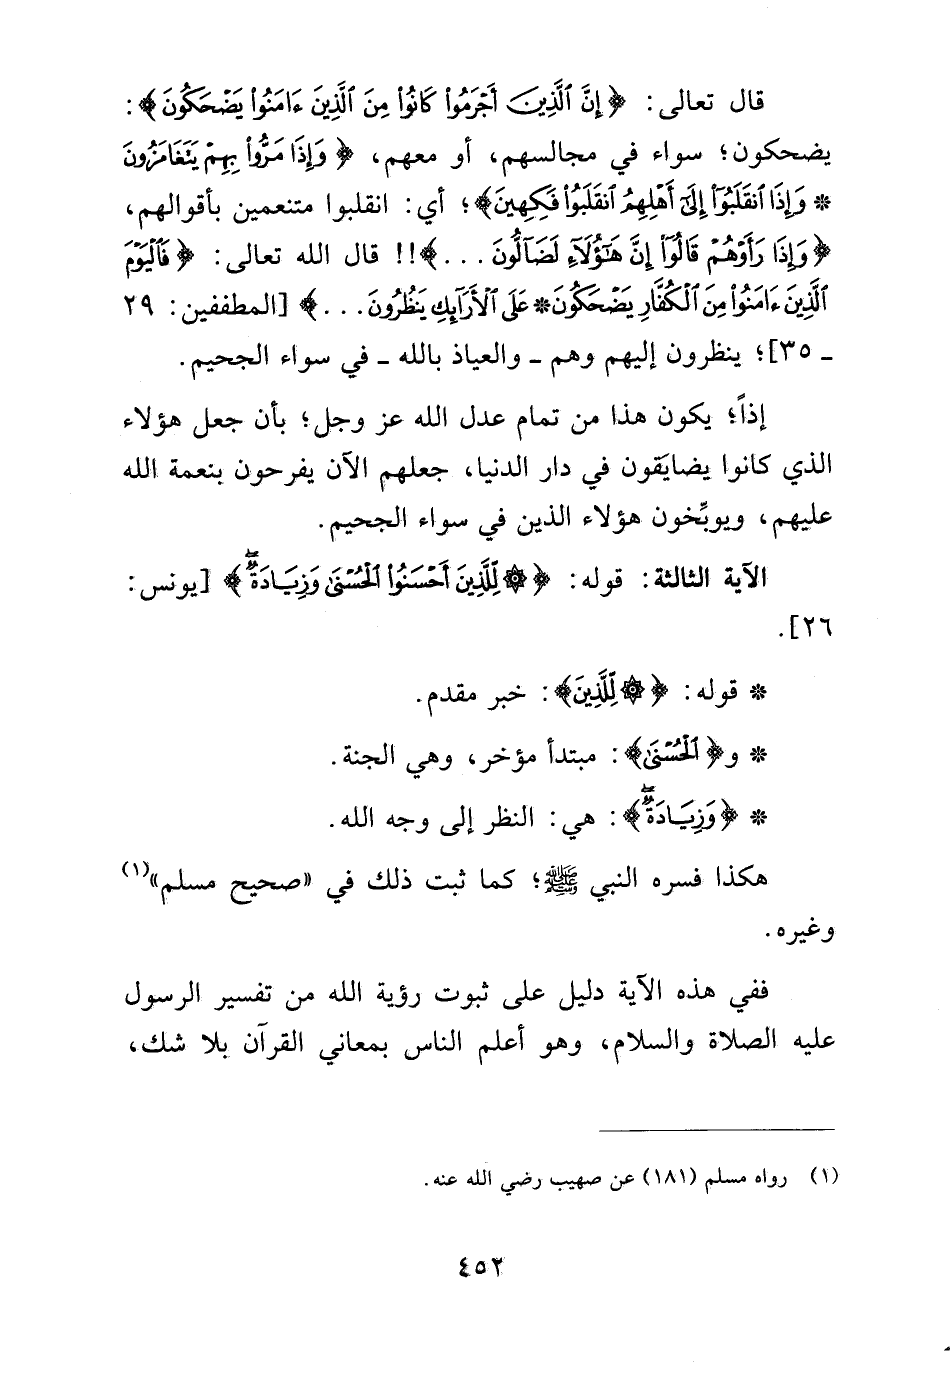 قال تعالى: ﴿إِنَّ ٱلَّذِينَ أَجْرَمُوا۟ كَانُوا۟ مِنَ ٱلَّذِينَ ءَامَنُوا۟ يَضْحَكُونَ﴾:
يضحكون؛ سواء في مجالسهم، أو معهم، ﴿وَإِذَا مَرُّوا۟ بِهِمْ يَتَغَامَزُونَ
* وَإِذَا ٱنقَلَبُوٓا۟ إِلَىٰٓ أَهْلِهِمُ ٱنقَلَبُوا۟ فَكِهِينَ﴾؛ أي: انقلبوا متنعمين بأقوالهم،
﴿وَإِذَا رَأَوْهُمْ قَالُوٓا۟ إِنَّ هَٰٓؤُلَآءِ لَضَآلُّونَ ...﴾!! قال الله تعالى: ﴿فَٱلْيَوْمَ
ٱلَّذِينَ ءَامَنُوا۟ مِنَ ٱلْكُفَّارِ يَضْحَكُونَ * عَلَى ٱلْأَرَآئِكِ يَنظُرُونَ ...﴾ [المطففين: ٢٩
ـ ٣٥]؛ ينظرون إليهم وهم ـ والعياذ بالله ـ في سواء الجحيم.
إذاً؛ يكون هذا من تمام عدل الله عز وجل؛ بأن جعل هؤلاء
الذي كانوا يضايَقون في دار الدنيا، جعلهم الآن يفرحون بنعمة الله
عليهم، ويوبِّخون هؤلاء الذين في سواء الجحيم.
الآية الثالثة: قوله: ﴿۞ لِّلَّذِينَ أَحْسَنُوا۟ ٱلْحُسْنَىٰ وَزِيَادَةٌۖ﴾ [يونس:
٢٦].
* قوله: ﴿۞ لِّلَّذِينَ﴾: خبر مقدم.
* و﴿ٱلْحُسْنَىٰ﴾: مبتدأ مؤخر، وهي الجنة.
* ﴿وَزِيَادَةٌۖ﴾: هي: النظر إلى وجه الله.
هكذا فسره النبي ﷺ؛ كما ثبت ذلك في «صحيح مسلم»(١)
وغيره.
ففي هذه الآية دليل على ثبوت رؤية الله من تفسير الرسول
عليه الصلاة والسلام، وهو أعلم الناس بمعاني القرآن بلا شك،
(١) رواه مسلم (١٨١) عن صهيب رضي الله عنه.
٤٥٢